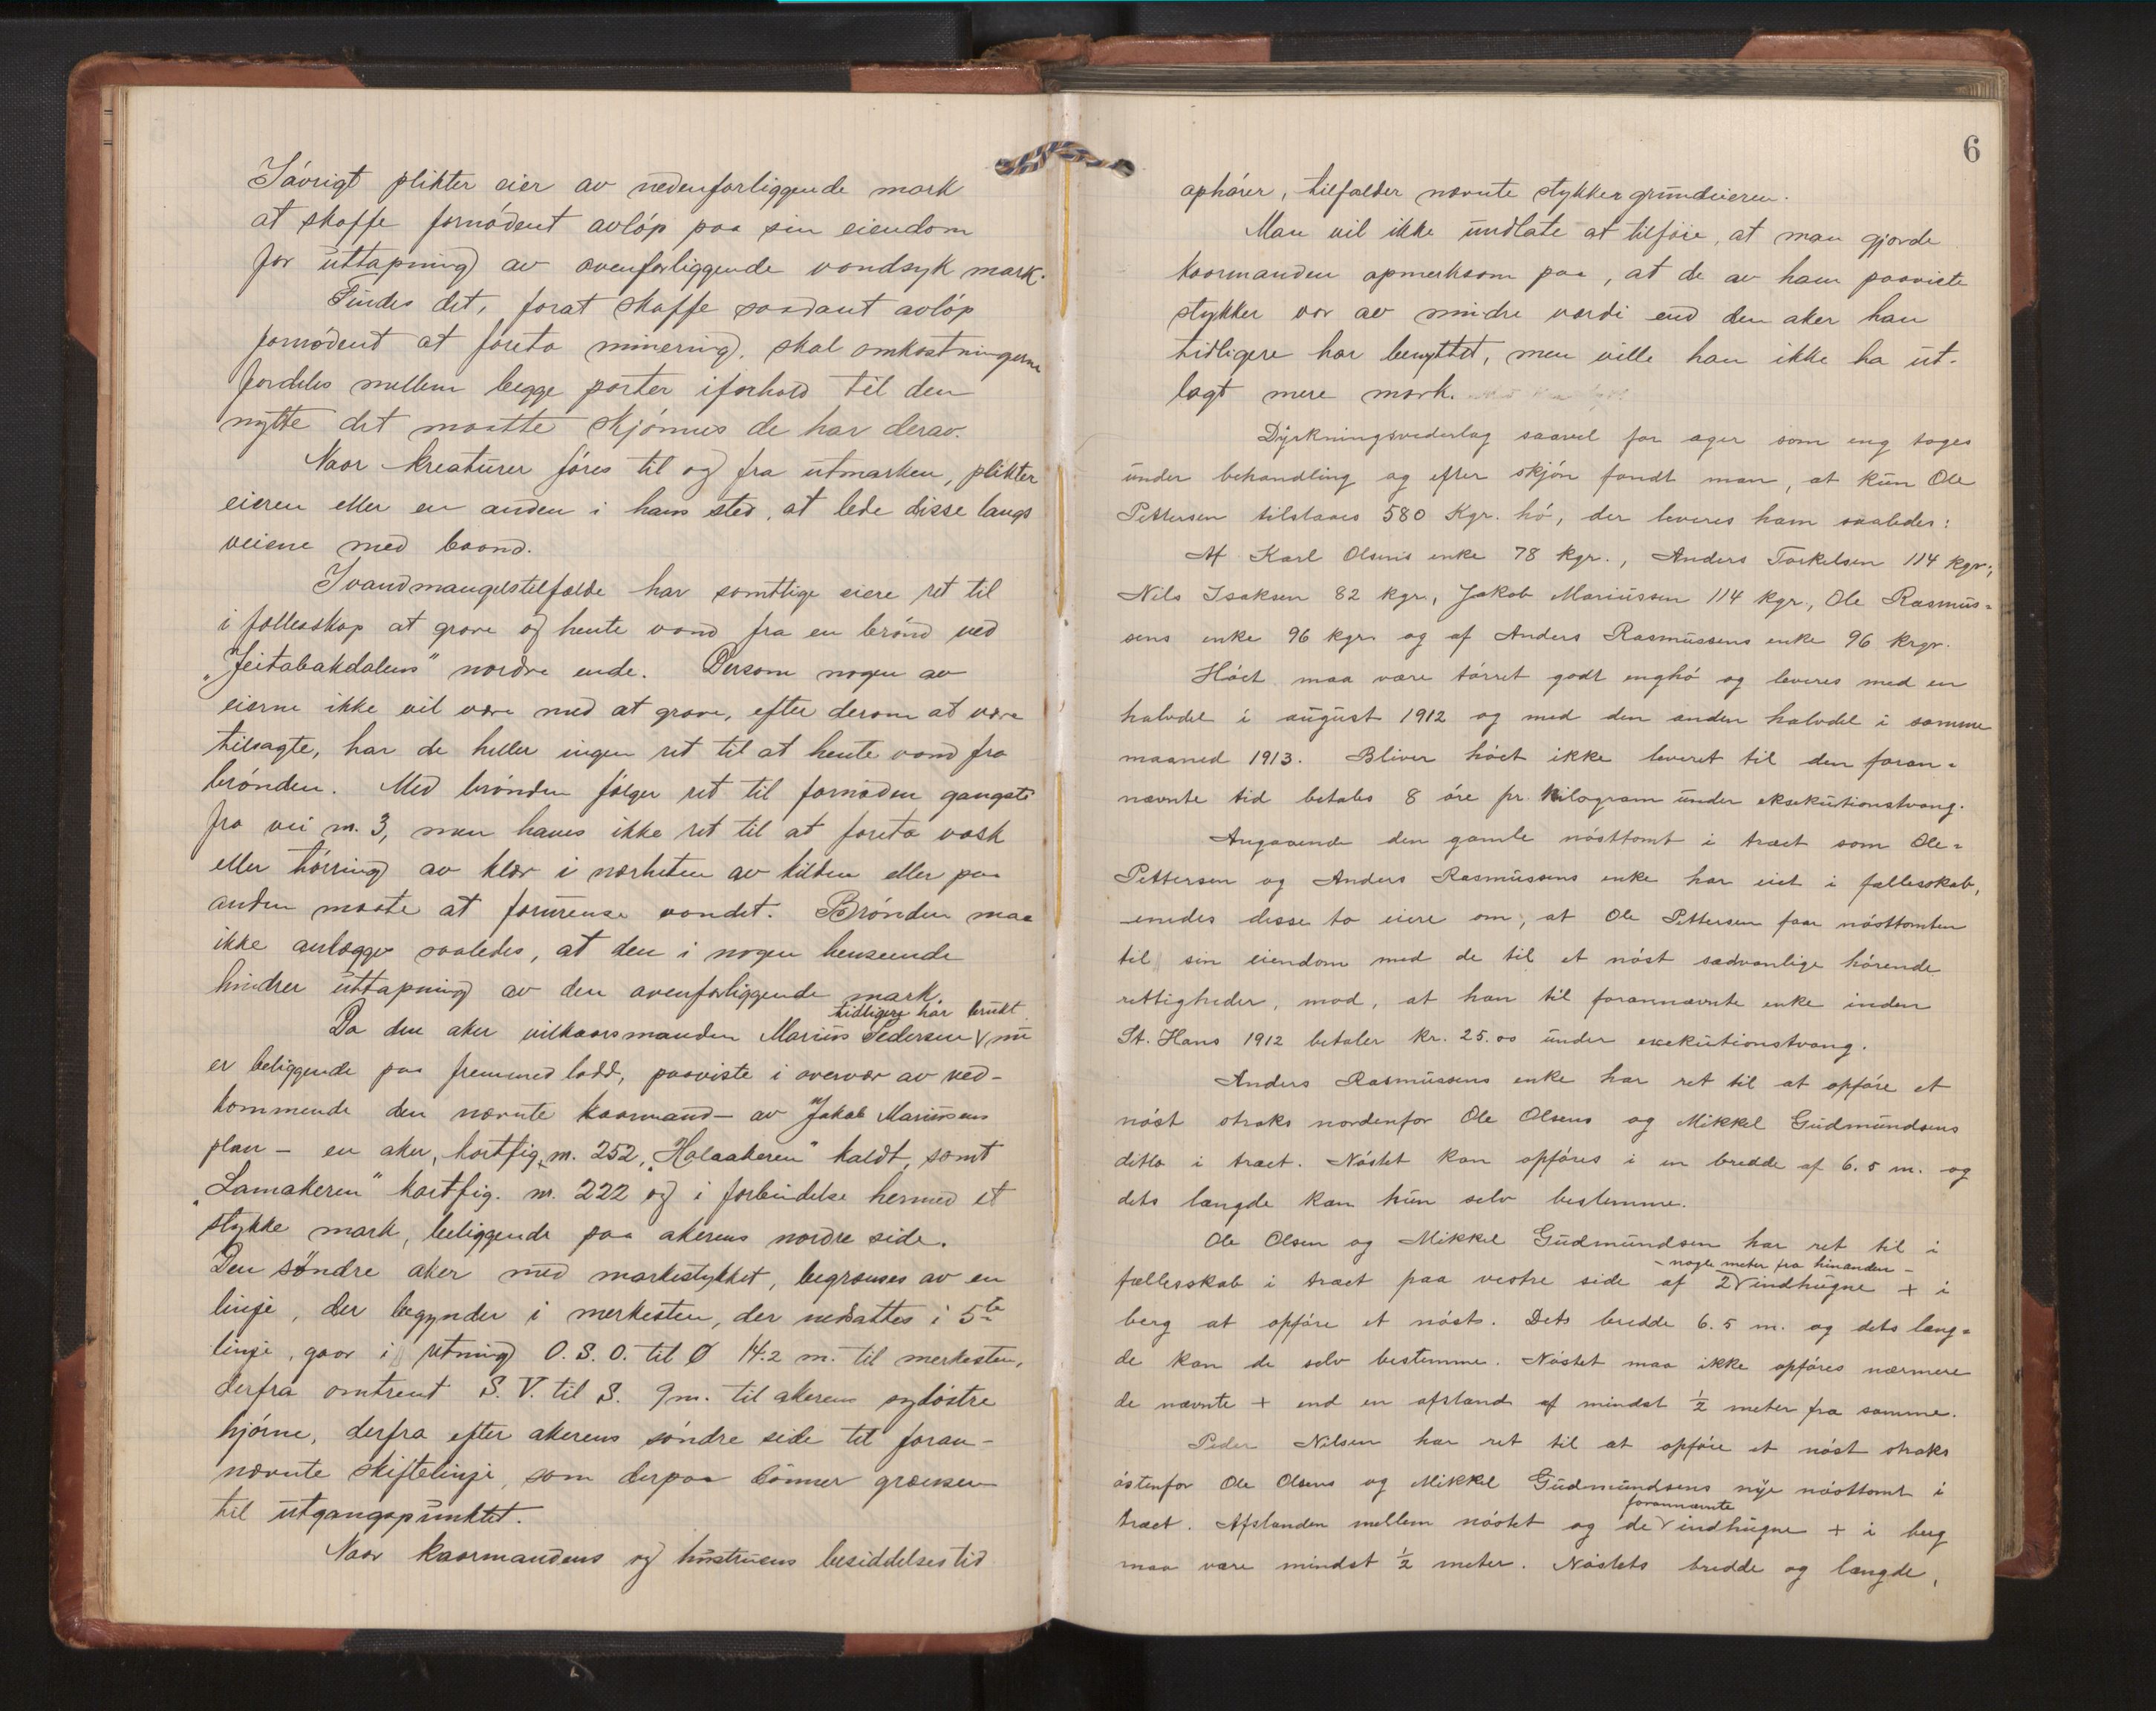 Iøvrigt plikter eier av nedenforliggende mark
at skaffe fornødent avløp paa sin eiendom
for uttapning av ovenforliggende vandsyk mark.
Findes det, forat skaffe saadant avløp
fornødent at foreta minering, skal omkostningerne
fordeles mellem begge parter iforhold til den
nytte det maatte skjønnes de har derav.
Naar kreaturer føres til og fra utmarken, plikter
eieren eller en anden i hans sted, at lede disse langs
veiene med baand.
Ivandmangelstilfælde har samtlige eiere ret til
i fællesskap at grave og hente vand fra en brønd ved
"Jeitabakdalens" nordre ende. Dersom nogen av
eierne ikke vil være med at grave, efter derom at være
tilsagte, har de heller ingen ret til at hente vand fra
brønden. Med brønden følger ret til fornøden gangsti
fra vei nr. 3, men haves ikke ret til at foreta vask
eller tørring av klær i nærheten av kilden eller paa
anden maate at forurense vandet. Brønden maa
ikke anlægges saaledes, at den i nogen henseende
hindrer uttapning av den ovenforliggende mark.
tidligere har brukt
Da den aker vilkaarsmanden Marius Pedersen V nu
er beliggende paa fremmed lodd, paaviste i overvær av ved-
kommende den nævnte kaarmand - av Jakob Mariussens
plan - en aker, kartfig. nr. 252, "Holaakeren" kaldt, samt
"Lamakeren" kartfig. nr. 222 og i forbindelse hermed et
stykke mark, beliggende paa akerens nordre side.
Den søndre aker med markestykket, begrænses av en
linje, der begynder i merkesten, der nedsattes i 5te
linje, gaar i retning O. S. O. til Ø 14.2 m. til merkesten,
derfra omtrent S. V. til S. 9 m. til akerens sydøstre
hjørne, derfra efter akerens søndre side til foran-
nævnte skiftelinje, som derpaa danner grænsen
til utgangspunktet.
Naar kaarmandens og hustruens besiddelsestid
6
ophører, tilfalder nævnte stykker grundeieren.
Man vil ikke undlate at tilføie, at man gjorde
kaarmanden opmerksom paa, at de av ham paaviste
stykker var av mindre værdi end den aker han
tidligere har benyttet, men ville han ikke ha ut-
lagt mere mark.
Dyrkningsvederlag saavel for ager som eng toges
under behandling og efter skjøn fandt man, at kun Ole
Pettersen tilstaaes 580 Kgr. hø, der leveres ham saaledes:
Af Karl Olsens enke 78 kgr., Anders Torkelsen 114 kgr.,
Nils Isaksen 82 kgr., Jakob Mariussen 114 kgr., Ole Rasmus=
sens enke 96 kgr. og af Anders Rasmussens enke 96 krgr.
Høet maa være tørret godt enghø og leveres med en
halvdel i august 1912 og med den anden halvdel i samme
maaned 1913. Bliver høet ikke leveret til den foran=
nævnte tid betales 8 øre pr. Kilogram under eksekutionstvang.
Angaaende den gamle nøsttomt i træet som Ole=
Pettersen og Anders Rasmussens enke har eiet i fællesskab,
enedes disse to eiere om, at Ole Pettersen faar nøsttomten
til sin eiendom med de til et nøst sædvanlige hørende
rettigheder, mod, at han til forannævnte enke inden
St. Hans 1912 betaler kr. 25.00 under exekutionstvang.
Anders Rasmussens enke har ret til at opføre et
nøst straks nordenfor Ole Olsens og Mikkel Gudmundsens
ditto i træet. Nøstet kan opføres i en bredde af 6.5 m. og
dets længde kan hun selv bestemme.
Ole Olsen og Mikkel Gudmundsen har ret til i
- nogle meter fra hinanden -
fællesskab i træet paa vestre side af 2 V indhugne + i
berg at opføre et nøst. Dets bredde 6.5 m. og dets læng=
de kan de selv bestemme. Nøstet maa ikke opføres nærmere
de nævnte + end en afstand af mindst ½ meter fra samme.
Peder Nilsen har ret til at opføre et nøst straks
østenfor Ole Olsens og Mikkel Gudmundsens nye nøsttomt i
forannævnte
træet. Afstanden mellem nøstet og de V indhugne + i berg
maa være mindst ½ meter. Nøstets bredde og længde,